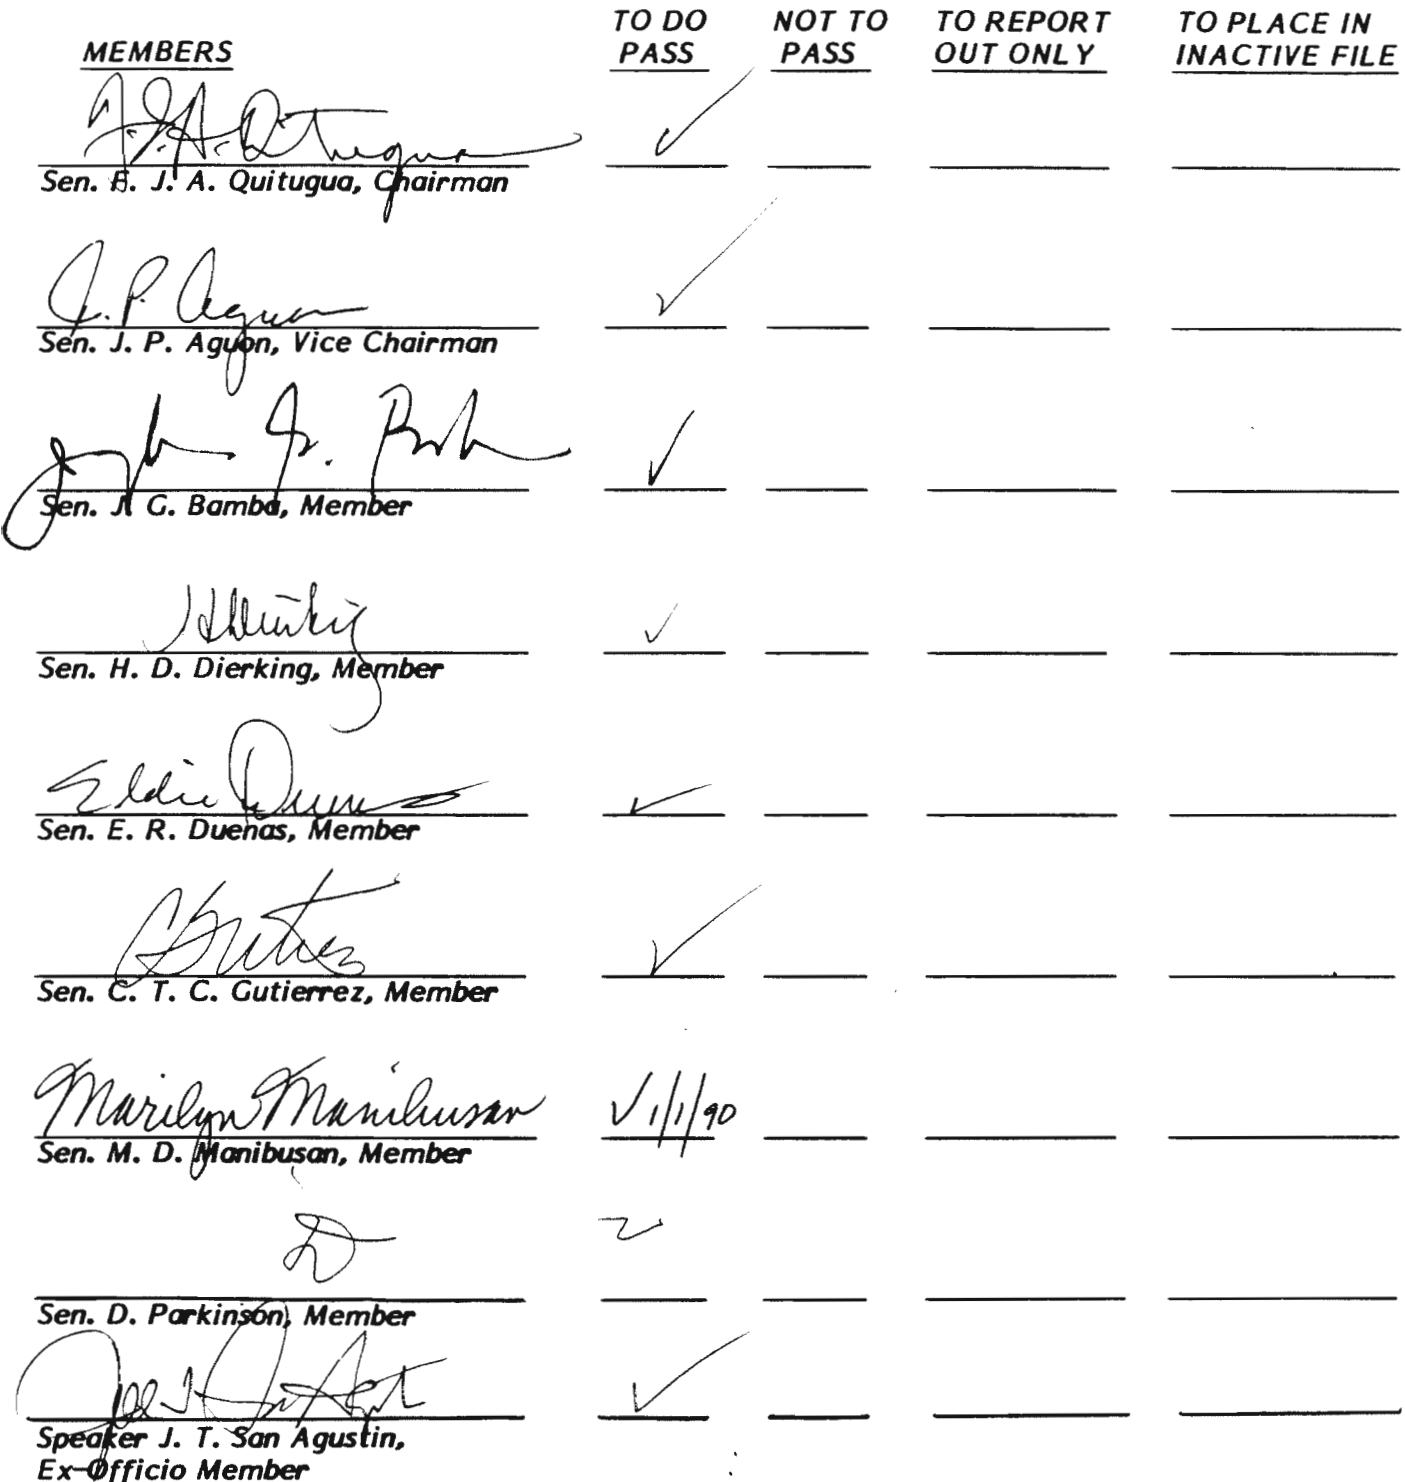 MEMBERS TO DO PASS NOT TO PASS TO REPORT OUT ONLY TO PLACE IN INACTIVE FILE
F. J. A. Quitugua ✓
Sen. F. J. A. Quitugua, Chairman
J. P. Aguon ✓
Sen. J. P. Aguon, Vice Chairman
✓
Sen. J. G. Bamba, Member
HDierking ✓
Sen. H. D. Dierking, Member
Eddie Duenas ✓
Sen. E. R. Duenas, Member
✓
Sen. C. T. C. Gutierrez, Member
Marilyn Manibusan ✓ 1/1/90
Sen. M. D. Manibusan, Member
Sen. D. Parkinson, Member
✓
Speaker J. T. San Agustin,
Ex-Officio Member